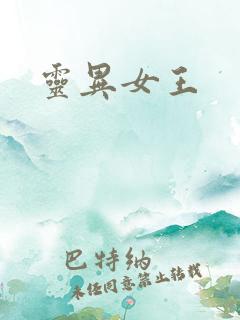 靈異女王
巴特納
未經同意禁止轉載